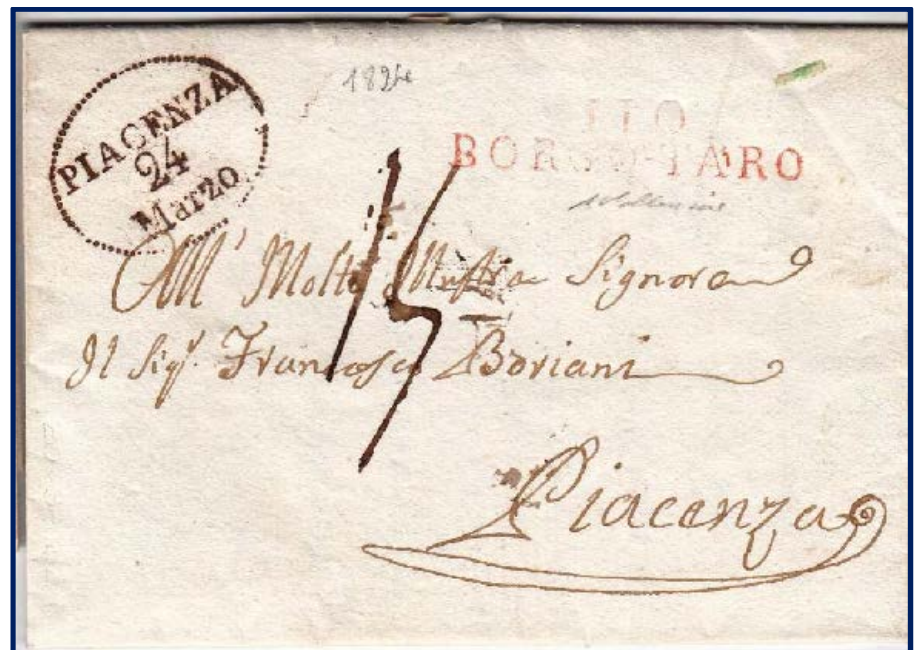 PIACENZA
24
Marzo
1824
110
BORGO-TARO
15
All' Molto Illustre Signore
Il Sigr. Francesco Boriani
Piacenza